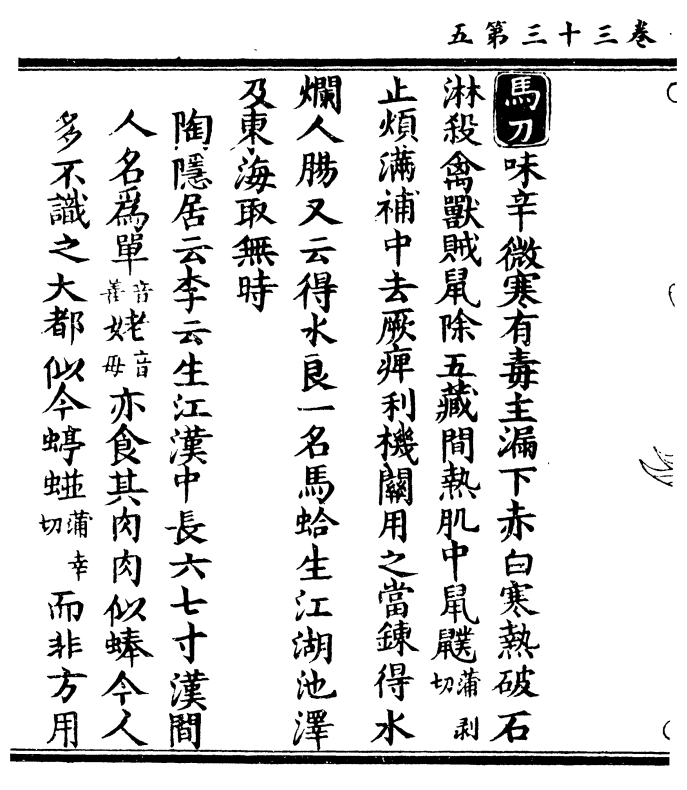 卷三十三第五
馬刀味辛微寒有毒主漏下赤白寒熱破石
淋殺禽獸賊鼠除五藏間熱肌中鼠䑕蒲剥切
止煩滿補中去厥痺利機關用之當鍊得水
爛人腸又云得水良一名馬蛤生江湖池澤
及東海取無時
陶隱居云李云生江漢中長六七寸漢間
人名為單音善姥音母亦食其肉肉似蜯今人
多不識之大都似今蝏𧋽蒲幸切而非方用